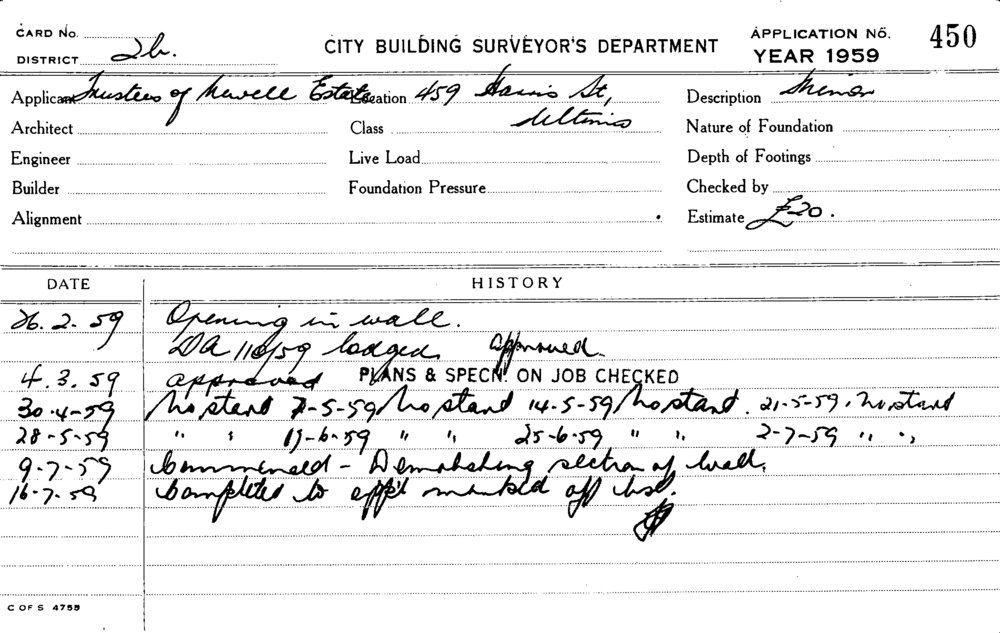 CARD No. CITY BUILDING SURVEYOR'S DEPARTMENT APPLICATION No. 450
DISTRICT 2b. YEAR 1959
Applicant Trustees of Newell Estate Location 459 Harris St, Description Minor
Architect Class Ultimo Nature of Foundation
Engineer Live Load Depth of Footings
Builder Foundation Pressure Checked by
Alignment Estimate £20.
DATE HISTORY
26.2.59 Opening in wall.
DA 110/59 lodged. approved.
4.3.59 approved PLANS & SPECN. ON JOB CHECKED
30-4-59 No start 7-5-59 No start 14-5-59 No start. 21-5-59. No start
28-5-59 " " 19-6-59 " " 25-6-59 " " 2-7-59 " "
9-7-59 Commenced - Demolishing section of wall.
16-7-59 Completed to app'l marked off list.
C OF S 4755